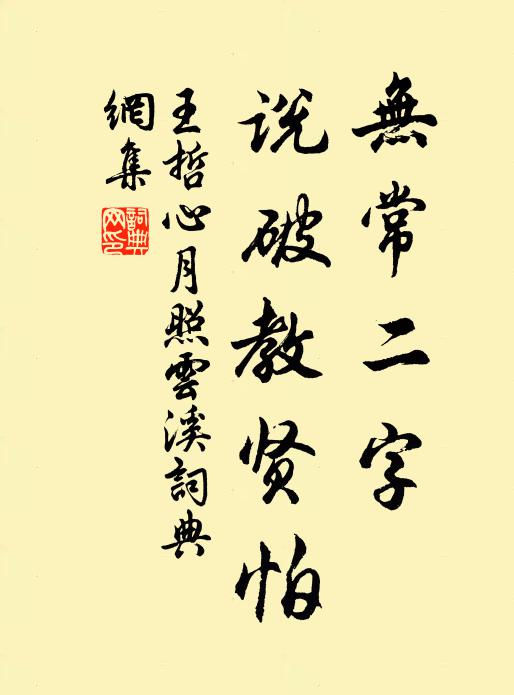 無常二字
说破教贤怕
王哲心月照雲溪詞典
網集
詞典
网印